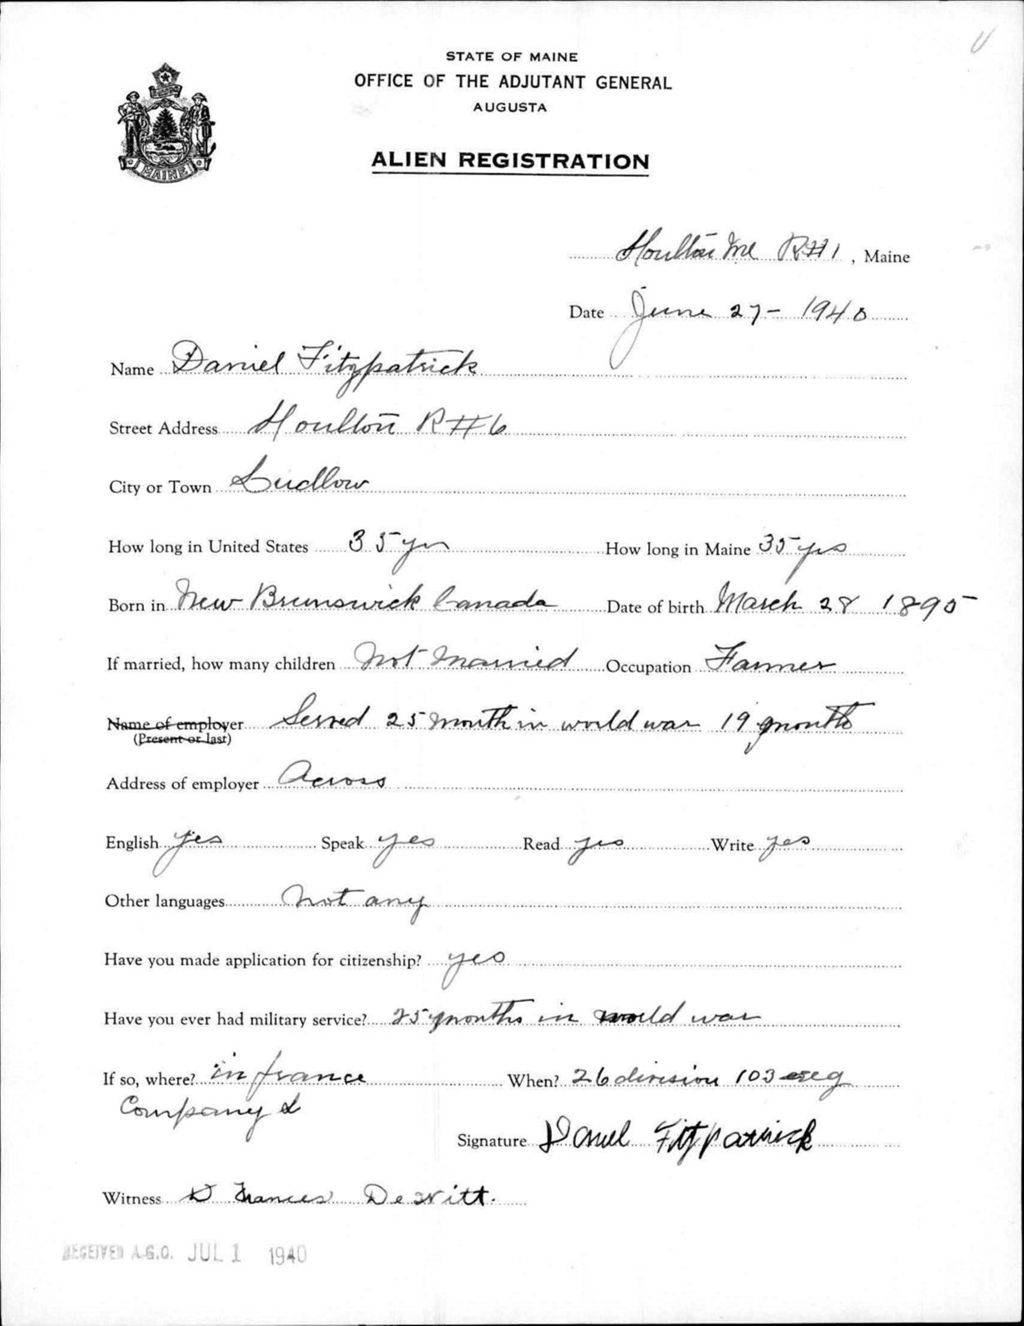 STATE OF MAINE
OFFICE OF THE ADJUTANT GENERAL
AUGUSTA
MAINE
ALIEN REGISTRATION
Houlton Me R#1, Maine
Date June 27 - 1940
Name Daniel Fitzpatrick
Street Address Houlton R#6
City or Town Ludlow
How long in United States 35 yrs How long in Maine 35 yrs
Born in New Brunswick Canada Date of birth March 28 1895
If married, how many children Not Married Occupation Farmer
Name of employer Served 25 month in world war 19 months
(Present or last)
Address of employer Across
English yes Speak yes Read yes Write yes
Other languages Not any
Have you made application for citizenship? yes
Have you ever had military service? 25 months in world war
If so, where? in france When? 26 division 103 reg
Company L
Signature Daniel Fitzpatrick
Witness Frances DeWitt.
RECEIVED A.G.O. JUL 1 1940